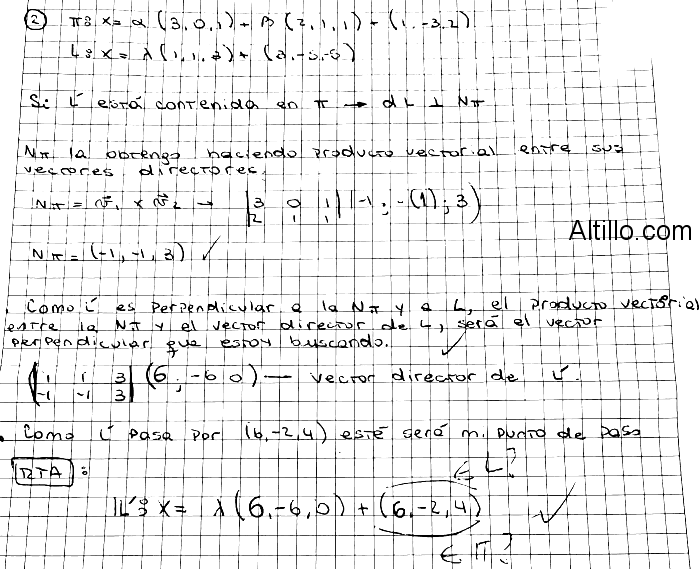 ② π: x= α (3,0,1) + β (2,1,1) + (1,-3,2)
L: x= λ(1,1,3) + (3,-5,-5)
Si L' está contenida en π → dL' ⊥ Nπ
Nπ la obtengo haciendo producto vectorial entre sus
vectores directores.
Nπ = v₁ x v₂ → |3 0 1| (-1; -(1); 3)
|2 1 1|
Nπ = (-1, -1, 3) ✓
Altillo.com
. Como L' es perpendicular a la Nπ y a L, el producto vectorial
entre la Nπ y el vector director de L, será el vector
perpendicular que estoy buscando. ✓
|1 1 3| (6; -6 0) — vector director de L'.
|-1 -1 3|
. Como L' pasa por (6,-2,4) esté será mi punto de paso
RTA :
∈ L?
L': x= λ (6,-6,0) + (6,-2,4) ✓
∈ π?